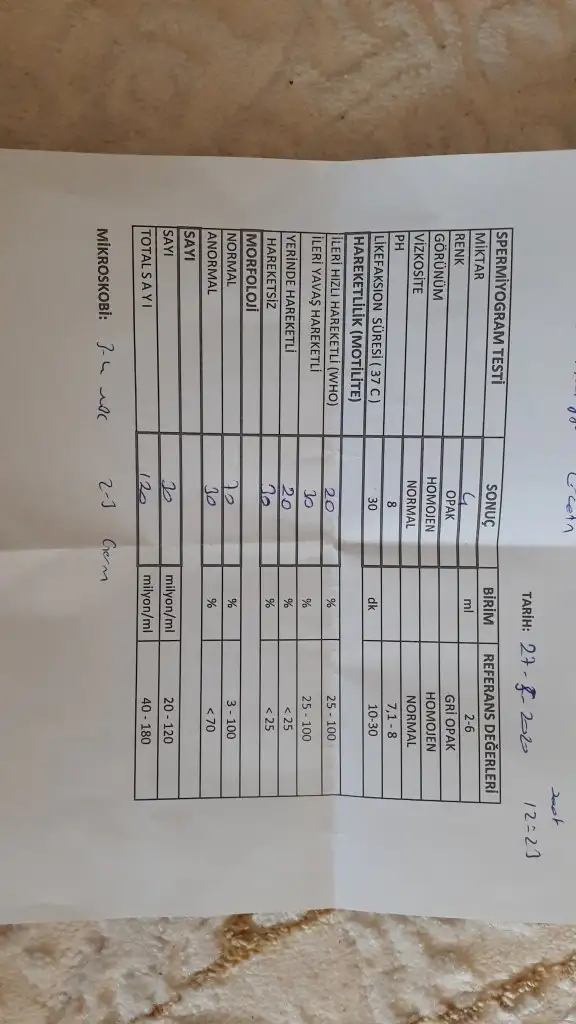 TARİH: 27-8-2020 saat 12:21
SPERMİYOGRAM TESTİ SONUÇ BİRİM REFERANS DEĞERLERİ
MİKTAR 4 ml 2-6
RENK OPAK GRİ OPAK
GÖRÜNÜM HOMOJEN HOMOJEN
VİZKOSİTE NORMAL NORMAL
PH 8 7,1 - 8
LİKEFAKSION SÜRESİ ( 37 C ) 30 dk 10-30
HAREKETLİLİK (MOTİLİTE)
İLERİ HIZLI HAREKETLİ (WHO) 20 % 25 - 100
İLERİ YAVAŞ HAREKETLİ 30 % 25 - 100
YERİNDE HAREKETLİ 20 % < 25
HAREKETSİZ 30 % < 25
MORFOLOJİ
NORMAL 70 % 3 - 100
ANORMAL 30 % < 70
SAYI
SAYI 30 milyon/ml 20 - 120
TOTAL S A Y I 120 milyon/ml 40 - 180
MİKROSKOBİ: 3-4